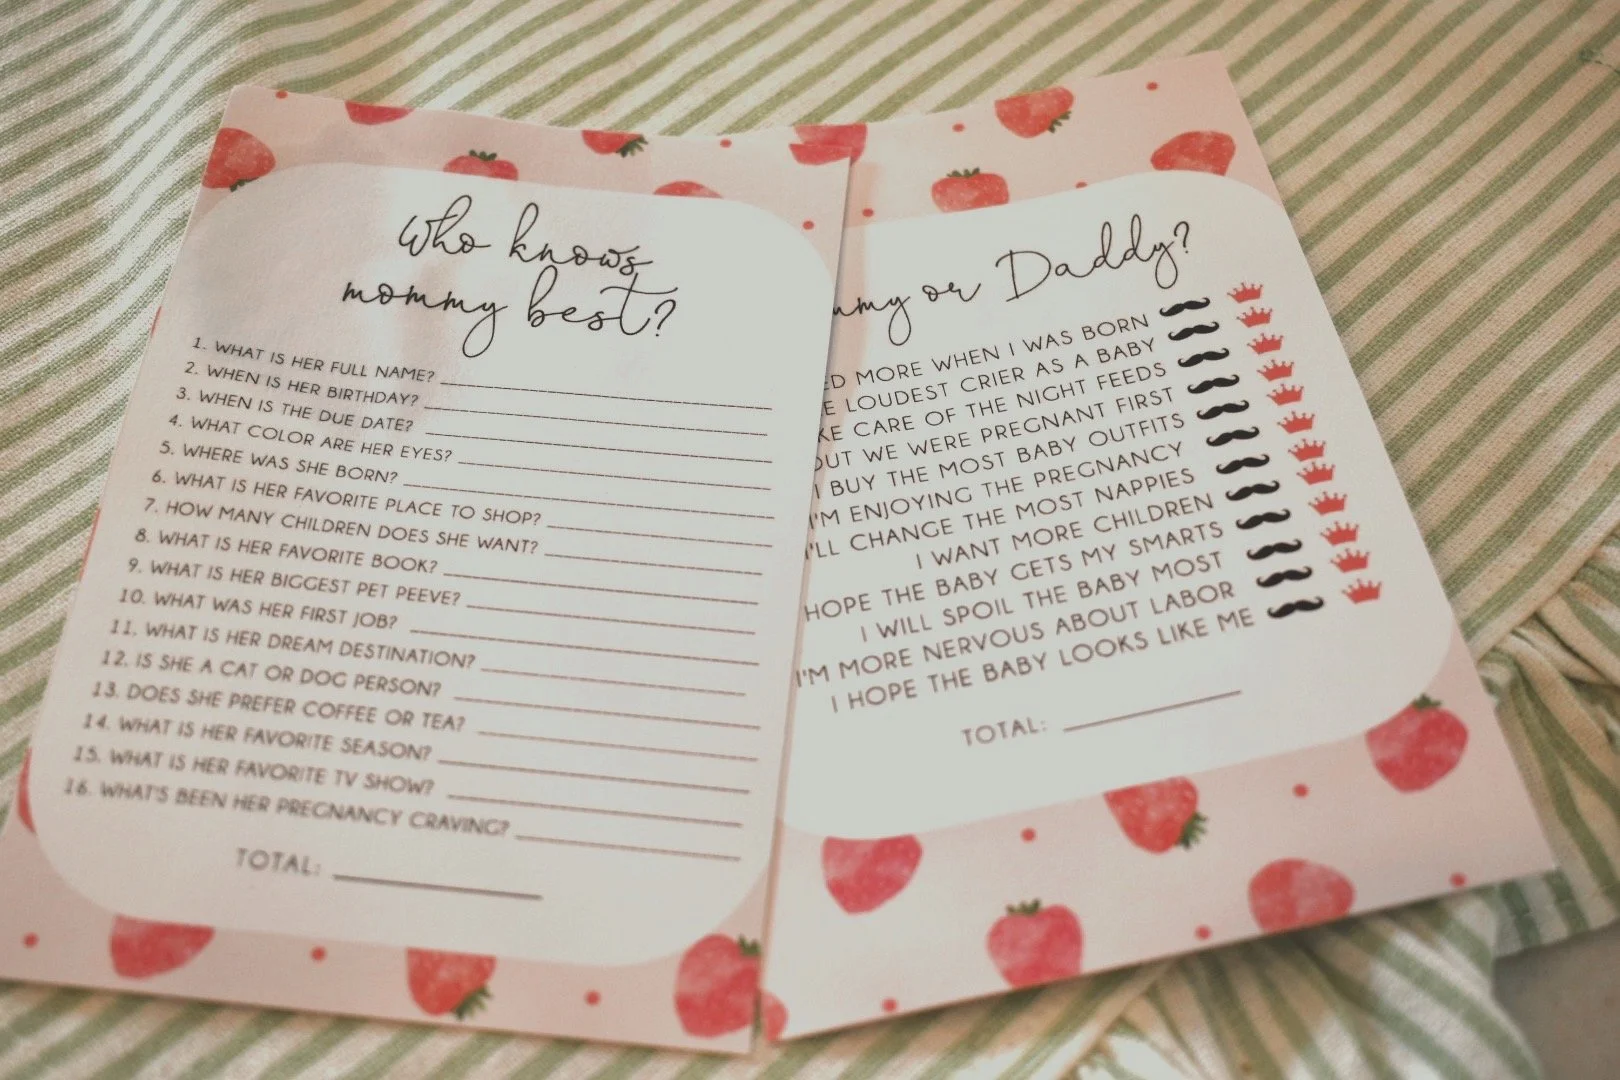 Who knows
mommy best?
1. WHAT IS HER FULL NAME?
2. WHEN IS HER BIRTHDAY?
3. WHEN IS THE DUE DATE?
4. WHAT COLOR ARE HER EYES?
5. WHERE WAS SHE BORN?
6. WHAT IS HER FAVORITE PLACE TO SHOP?
7. HOW MANY CHILDREN DOES SHE WANT?
8. WHAT IS HER FAVORITE BOOK?
9. WHAT IS HER BIGGEST PET PEEVE?
10. WHAT WAS HER FIRST JOB?
11. WHAT IS HER DREAM DESTINATION?
12. IS SHE A CAT OR DOG PERSON?
13. DOES SHE PREFER COFFEE OR TEA?
14. WHAT IS HER FAVORITE SEASON?
15. WHAT IS HER FAVORITE TV SHOW?
16. WHAT'S BEEN HER PREGNANCY CRAVING?
TOTAL:
or Daddy?
MORE WHEN I WAS BORN
LOUDEST CRIER AS A BABY
CARE OF THE NIGHT FEEDS
WE WERE PREGNANT FIRST
I BUY THE MOST BABY OUTFITS
I'M ENJOYING THE PREGNANCY
I'LL CHANGE THE MOST NAPPIES
I WANT MORE CHILDREN
HOPE THE BABY GETS MY SMARTS
I WILL SPOIL THE BABY MOST
I'M MORE NERVOUS ABOUT LABOR
I HOPE THE BABY LOOKS LIKE ME
TOTAL: